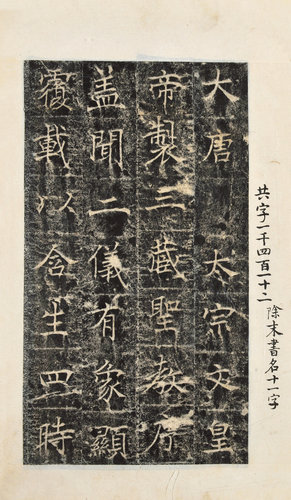 共字一千四百一十二 除末書名十一字
大唐 太宗文皇
帝製三藏聖教序
盖聞二儀有象顯
覆載以含生四時